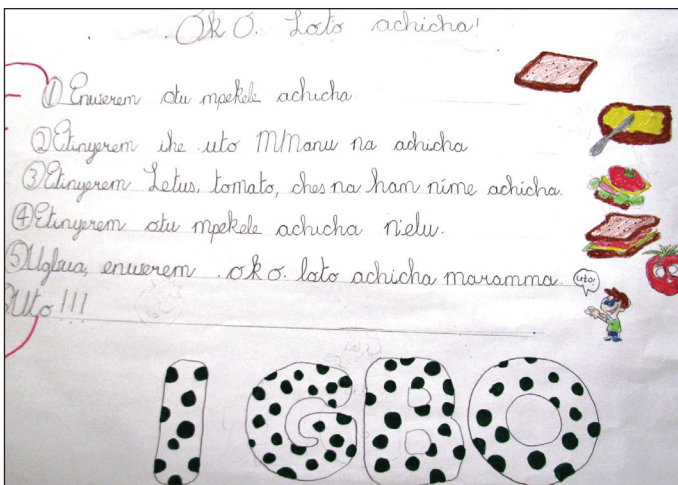 OkO. Loto achicha!
① Enwerem otu mpekele achicha
② Etinyerem ihe uto M/Manu na achicha
③ Etinyerem Letus, tomato, ches na ham nime achicha.
④ Etinyerem otu mpekele achicha nielu.
⑤ Ugbua, enwerem .oko. loto achicha maramma.
uto!
Uto!!!
IGBO